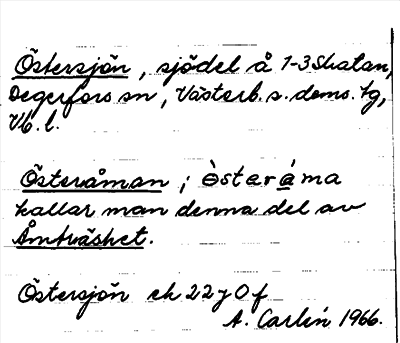 Östersjön, sjödel å 1-3 Skatan,
Degerfors sn, Västerb. s. doms. tg,
Vb. l.
Österåman ; östaråma
kallar man denna del av
Åmträsket.
Östersjön ek 22y0f
A. Carlén 1966.